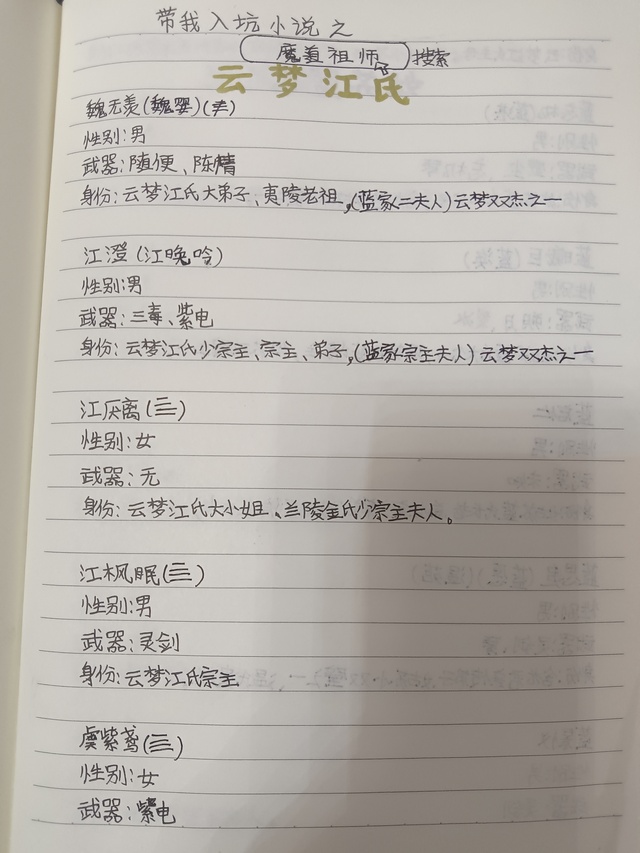 带我入坑小说之
魔道祖师 搜索
云梦江氏
魏无羡(魏婴)
性别:男
武器:随便、陈情
身份:云梦江氏大弟子、夷陵老祖,(蓝家二夫人)云梦双杰之一
江澄(江晚吟)
性别:男
武器:三毒、紫电
身份:云梦江氏少宗主、宗主、弟子,(蓝家宗主夫人)云梦双杰之一
江厌离(三)
性别:女
武器:无
身份:云梦江氏大小姐、兰陵金氏少宗主夫人。
江枫眠(三)
性别:男
武器:灵剑
身份:云梦江氏宗主
虞紫鸢(三)
性别:女
武器:紫电